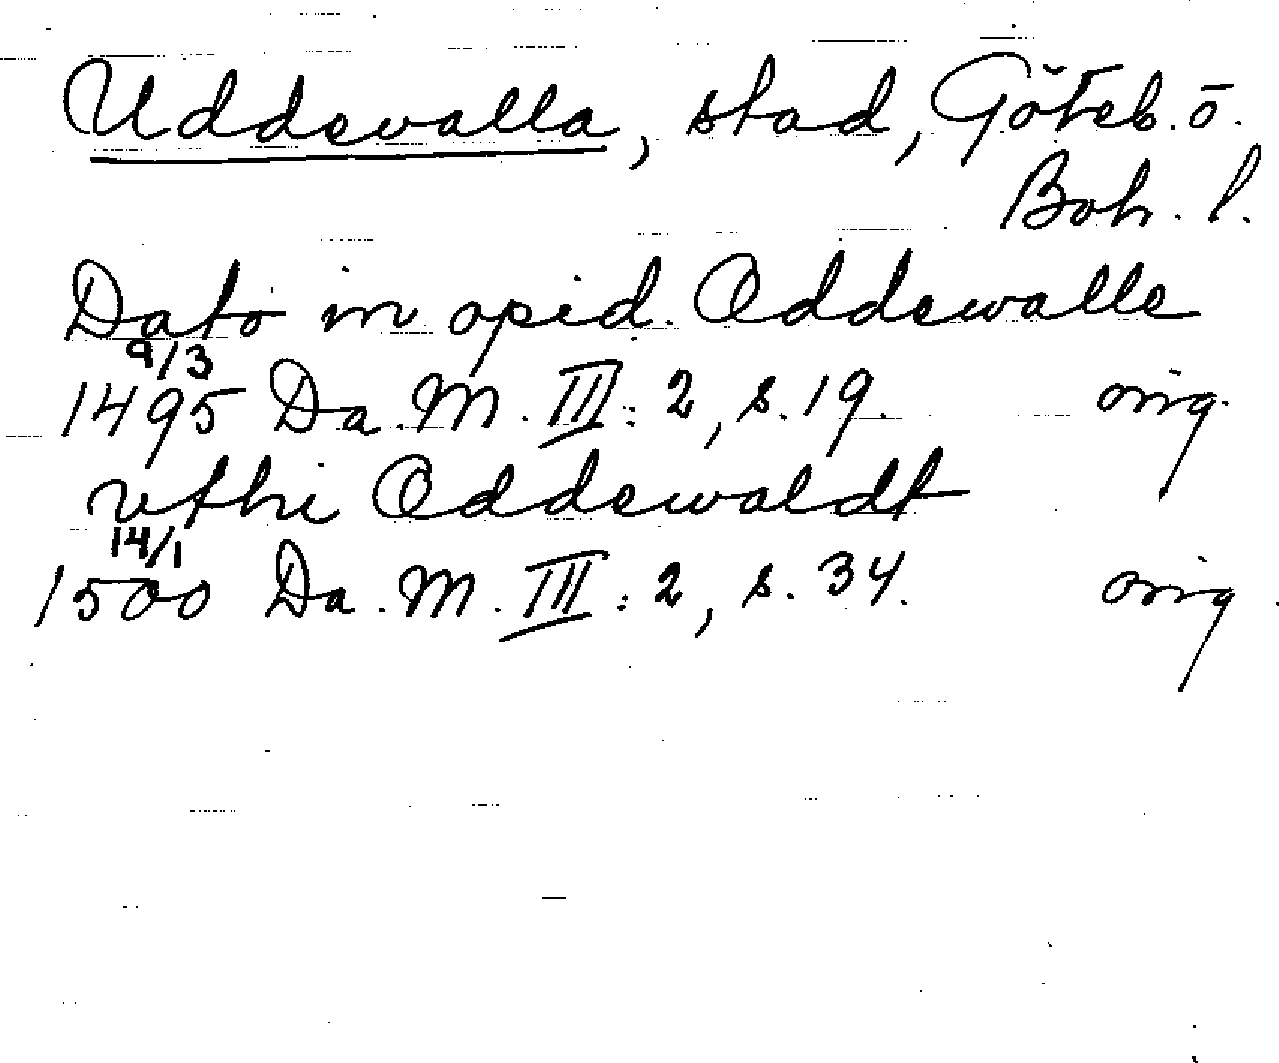 Uddevalla, stad, Göteb. o.
Boh. l.
Dato in opid. Oddewalle
9/3
1495 Da. M. III: 2, s. 19. orig.
vthi Oddewaldt
14/1
1500 Da. M. III: 2, s. 34. orig.